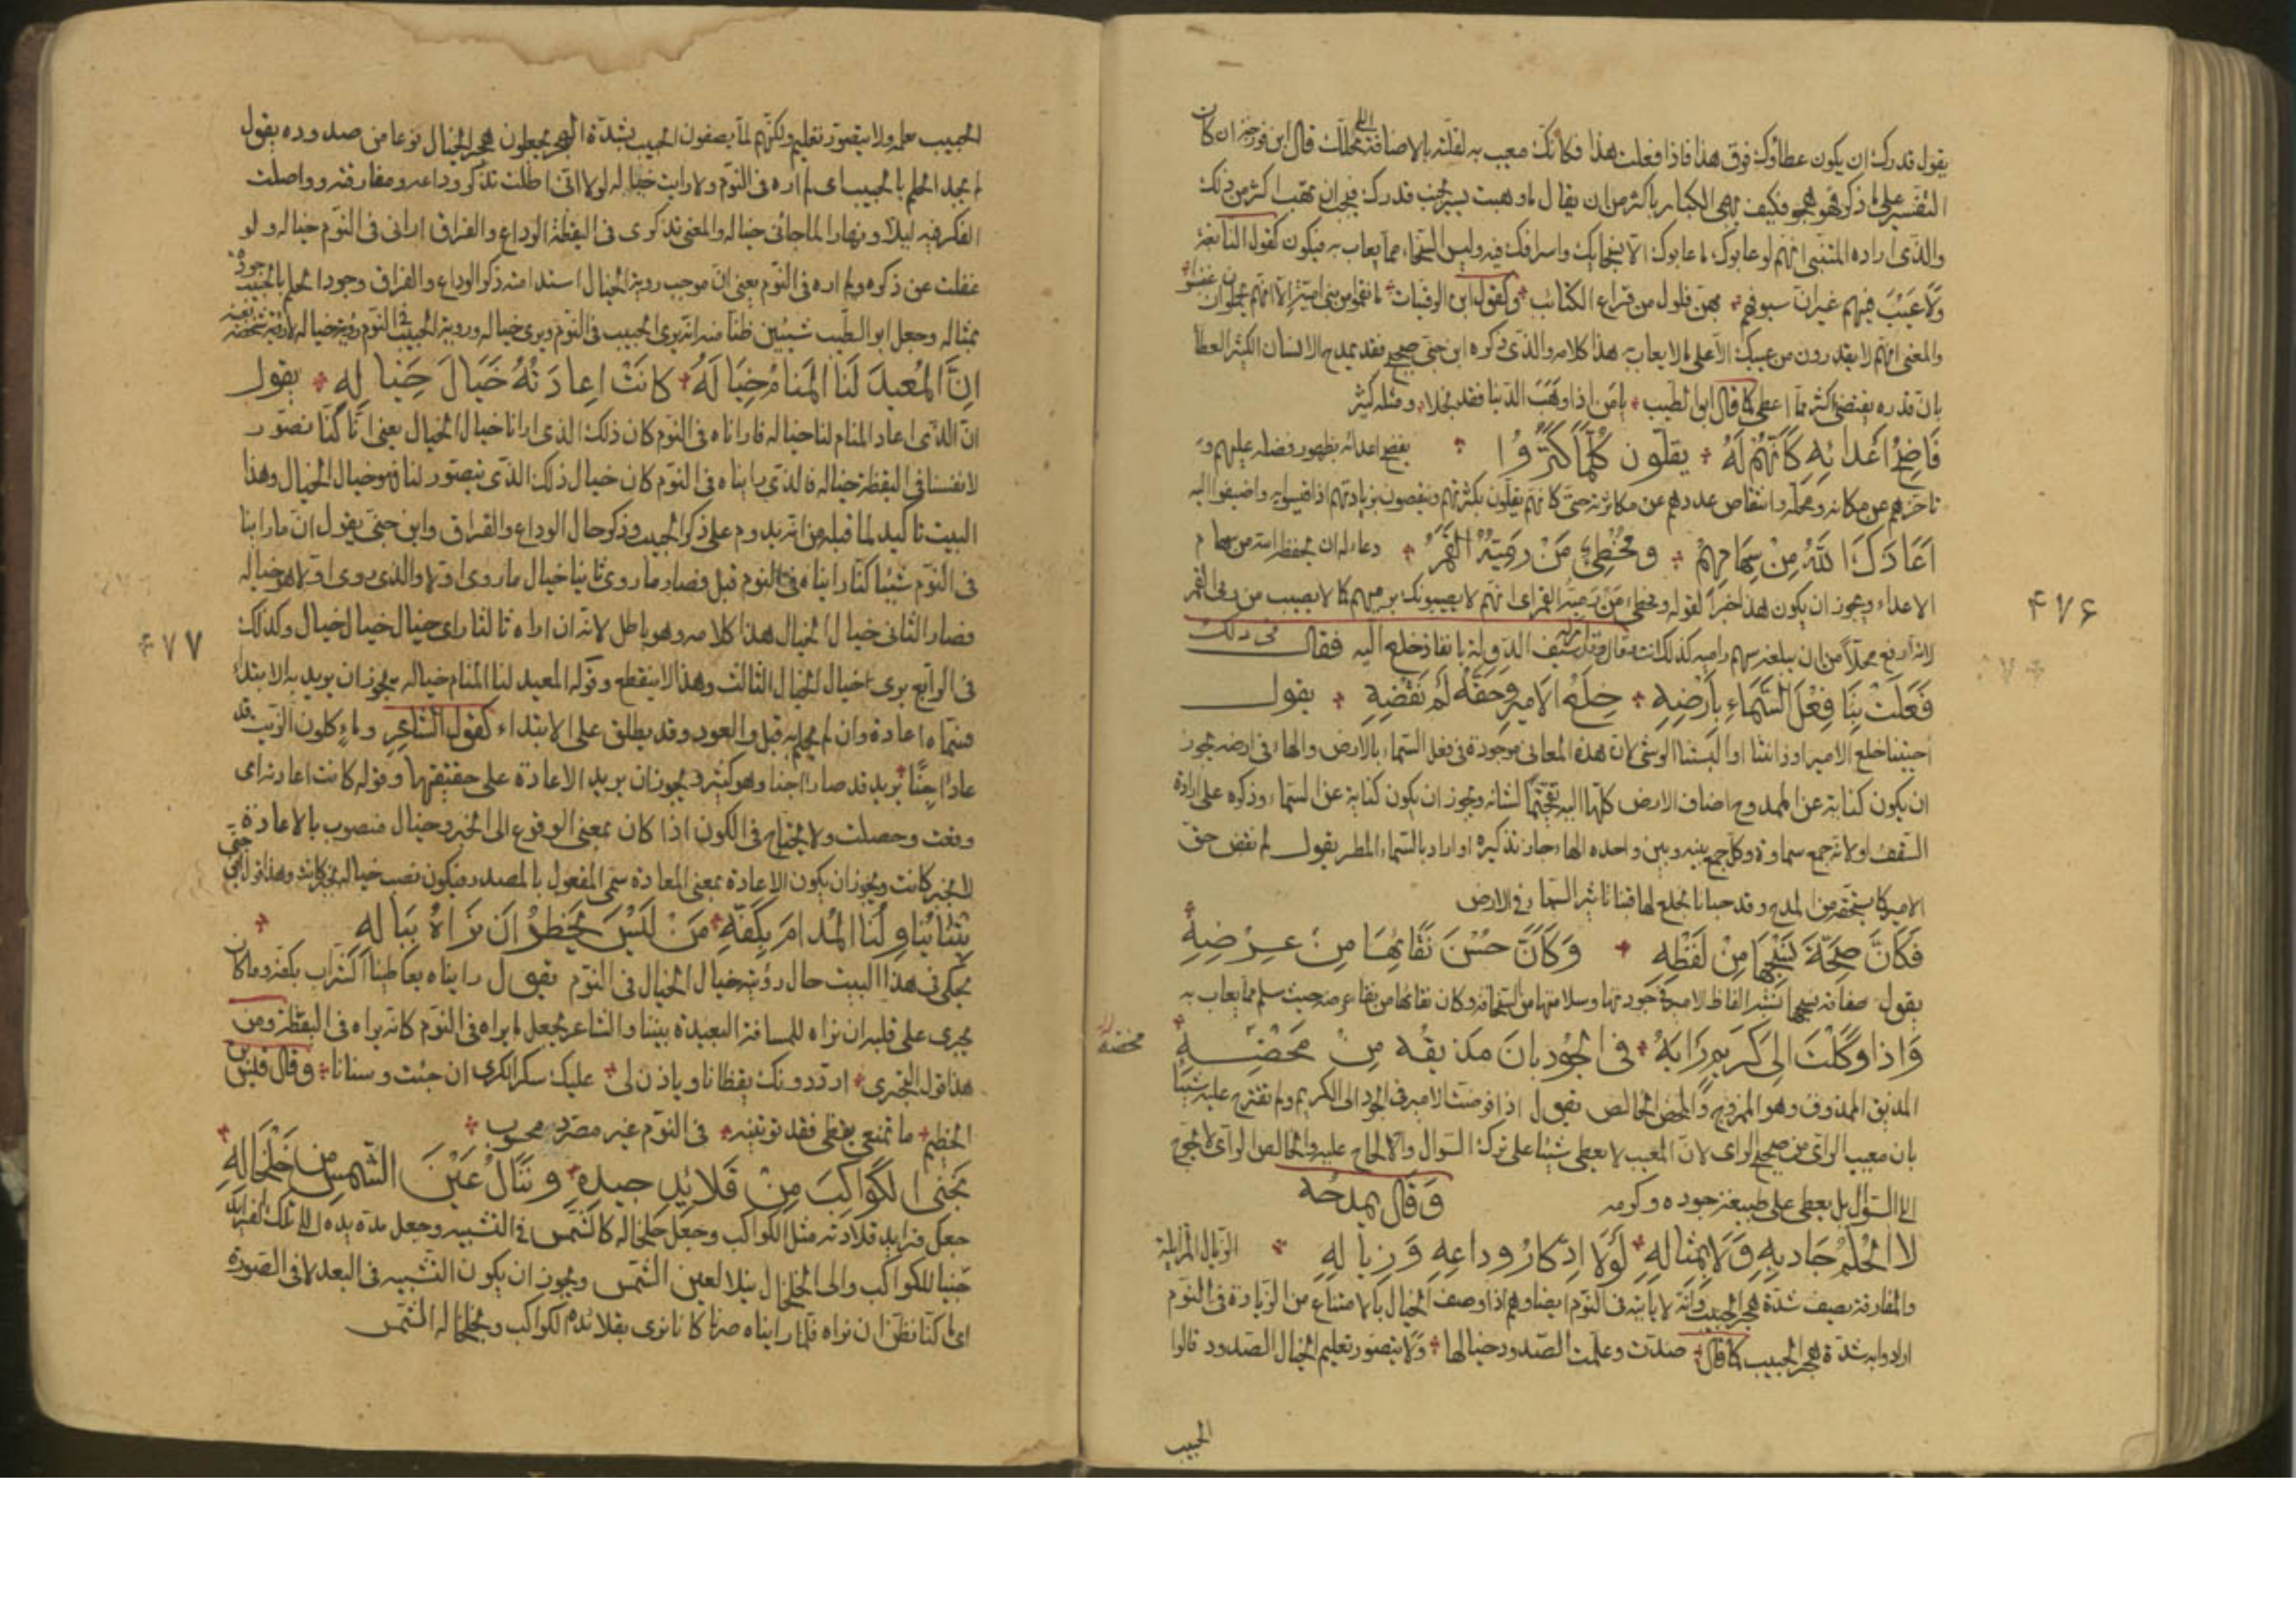 يقول قدرك ان يكون عطاؤك فوق هذا فاذا فعلت هذا فكانك معيب به لقلته بالاضافة الى محلك قال ابن فورجه ان كان
التفسير على ما ذكر فهو هجو فكيف يهجى الكبار باكثر من ان يقال ما وهبت يسير بجنب قدرك فيجب ان تهب اكثر من ذلك
والذي اراده المتنبي انهم لو عابوك ما عابوك الا بسخايك واسرافك فيه وليس السخاء مما يعاب به فيكون كقول النابغة
وَلَا عَيْبَ فيهم غير ان سيوفهم بهن فلول من قراع الكتائب وكقول ابن الرقيات ما نقموا من بني امية الا انهم يحلمون ان غضبوا
والمعنى انهم لا يقدرون من عيبك الا على ما لا يعاب به هذا كلامه والذي ذكره ابن جني صحيح فقد يمدح الانسان الكثير العطا
بان قدره يقتضي اكثر مما اعطى كما قال ابو الطيب يا من اذا وهب الدنيا فقد بخلا ومثله كثير
فَاضِحُ اَعْدَائِهِ كَاَنَّهُمْ لَهُ يقلون كُلَّمَا كَثُرُوا يفضح اعدائه بظهور فضله عليهم و
تاخرهم عن مكانه ومحله وانتقاص عددهم عن مكاثرته حتى كانهم يقلون بكثرتهم وينقصون بزيادتهم اذا قيسوا به واضيفوا اليه
اَعَاذَكَ اللهُ مِنْ سِهَامِهِمْ ومُخْطِئٌ مَنْ رَمِيُّهُ القَمَرُ دعاء له ان يحفظه الله من سهام
الاعداء ويجوز ان يكون هذا خبرا لقوله ومخطئ من رميه القمر اى انهم لا يصيبونك برميهم كما لا يصيب من رمى القمر
لانه ارفع محلا من ان يبلغه سهم راميه كذلك انت وقال وقد امر له سيف الدولة بانفاذ خلع اليه فقال في ذلك
فَعَلَتْ بِنَا فِعْلَ السَّمَاءِ بِاَرْضِهِ خِلَعُ الاَمِيرِ وَحَقَّهُ لَمْ نَقْضِهِ يقول
احيتنا خلع الامير او زانتنا او البستنا الوشي لان هذه المعاني موجودة في فعل السماء بالارض والهاء في ارضه يجوز
ان يكون كناية عن الممدوح اضاف الارض كلها اليه تفخيما لشانه ويجوز ان يكون كناية عن السماء وذكره على ارادة
السقف او لانه جمع سماوة وكل جمع بينه وبين واحده الهاء جاز تذكيره او اراد بالسماء المطر يقول لم نقض حق
الامير كما يستحقه من المدح وقد حبانا بخلع لها فينا تاثير السماء في الارض
فَكَاَنَّ صِحَّةَ نَسْجِهَا مِنْ لَفْظِهِ وَكَاَنَّ حُسْنَ نَقَائِهَا مِنْ عِرْضِهِ
يقول صفاقة نسجها تشبه الفاظ الامير في جودتها وسلامتها من السخافة وكان نقائها من نقاء عرضه حيث سلم مما يعاب به
وَاِذَا وَكَلْتَ اِلَى كَرِيمٍ رَايَهُ في الجُودِ بَانَ مَذيقُهُ مِنْ مَحْضِهِ
محضه
المذيق الممذوق وهو الممزوج والمحض الخالص يقول اذا فوضت الامير في الجود الى الكريم ولم تقترح عليه شيئا
بان معيب الراى من صحيح الراى لان المعيب لا يعطى شيئا على ترك السوال والالحاح عليه والخالص الراى لا يحوج
الى السؤال بل يعطى على طبيعة جوده وكرمه وقال يمدحه
لَا الْحُلْمُ جَادَ بِهِ وَلَا بِمِثَالِهِ لَوْلَا ادِّكَارُ وِدَاعِهِ وَزِيَالِهِ الزيال المزايلة
والمفارقة يصف شدة هجر الحبيب وانه لا ياتيه في النوم ايضا وهم اذا وصفوا الخيال بالامتناع من الزيارة في النوم
ارادوا به شدة هجر الحبيب كما قال صدّت وعلّمت الصدود خيالها ولا يتصور تعليم الخيال الصدود قالوا
الحبيب
۴۷۶
الحبيب علمه ولا يتصور تعليم ولكنهم لما يصفون الحبيب بشدة الهجر يجعلون هجر الخيال نوعا من صدوده يقول
لم يجد الحلم بالحبيب اى لم اره في النوم ولا رايت خياله لولا اني اطلت تذكر وداعه ومفارقته وواصلت
الفكر فيه ليلا ونهارا لما جاني خياله والمعنى تذكرى في اليقظة الوداع والفراق ارانى في النوم خياله ولو
غفلت عن ذكره ولم اره في النوم يعنى ان موجب روية الخيال استدامة ذكر الوداع والفراق وجود الحلم بالحبيب جودة
بمثاله وجعل ابو الطيب شيئين ظنا منه انه يرى الحبيب في النوم ويرى خياله وروية الحبيب في النوم روية خياله لا روية شخصه بعينه
اِنَّ الْمُعِيدَ لَنَا الْمَنَامُ خَيَالَهُ كَانَتْ اِعَادَتُهُ خَيَالَ خَيَالِهِ يقول
ان الذى اعاد المنام لنا خياله فاراناه في النوم كان ذلك الذى ارانا خيال الخيال يعنى انا كنا نصور
لانفسنا في اليقظة خياله فالذى رايناه في النوم كان خيال ذلك الذى يتصور لنا فهو خيال الخيال وهذا
البيت تاكيد لما قبله من انه يدوم على ذكر الحبيب وذكر حال الوداع والفراق وابن جني يقول ان ما راينا
في النوم شيئا كنا رايناه في النوم قبل فصار ما روى ثانيا خيال ما روى اولا والذى روى اولا هو خياله
فصار الثاني خيال الخيال هذا كلامه وهو باطل لانه ان اراه ثالثا راى خيال خيال الخيال وكذلك
في الرابع يرى خيال الخيال الثالث وهذا لا ينقطع وقوله المعيد لنا المنام خياله يجوز ان يريد به الابتداء
فسماه اعادة وان لم يحلم به قبل والعود قد يطلق على الابتداء كقول الشاعر وماء كلون الزيت قد
عاد اجنا يريد قد صار اجنا وهو كثير ويجوز ان يريد الاعادة على حقيقتها وقوله كانت اعادته اى
وقعت وحصلت ولا يحتاج في الكون اذا كان بمعنى الوقوع الى الخبر وخيال منصوب بالاعادة
لا بخبر كانت ويجوز ان يكون الاعادة بمعنى المعادة سمى المفعول بالمصدر فيكون نصب خياله بخبر كانت وهذا قول ابن جنى
بِتْنَا يُنَاوِلُنَا الْمُدَامَ بِكَفِّهِ مَنْ لَيْسَ يَخْطُرُ اَنْ نَرَاهُ بِبَالِهِ
يحكى في هذا البيت حال روية خيال الخيال في النوم يقول رايناه يعاطينا الشراب بكفه وما كان
يجرى على قلبه ان نراه للمسافة البعيدة بيننا والشاعر يجعل ما يراه في النوم كانه يراه في اليقظة ومن
هذا قول البحترى اردد دونك يقظانا وياذن لي عليك سكر الكرى ان جئت وسنانا وقال قيس بن
الخطيم ما تمنعى يقظى فقد توتينه في النوم غير مصرد محسوب
نَجْنِى الكَوَاكِبَ مِنْ قَلَائِدِ جِيدِهِ وَنَنَالُ عَيْنَ الشَّمْسِ مِنْ خَلْخَالِهِ
جعل فرايد قلادته مثل الكواكب وجعل خلخاله كالشمس في التشبيه وجعل مده يده الى تلك الفرايد
جنيا للكواكب والى الخلخال نيلا لعين الشمس ويجوز ان يكون التشبيه في البعد لا في الصورة
اى ما كنا نظن ان نراه فلما رايناه صرنا كانا نرى بقلائده الكواكب وبخلخاله الشمس
۴۷۷